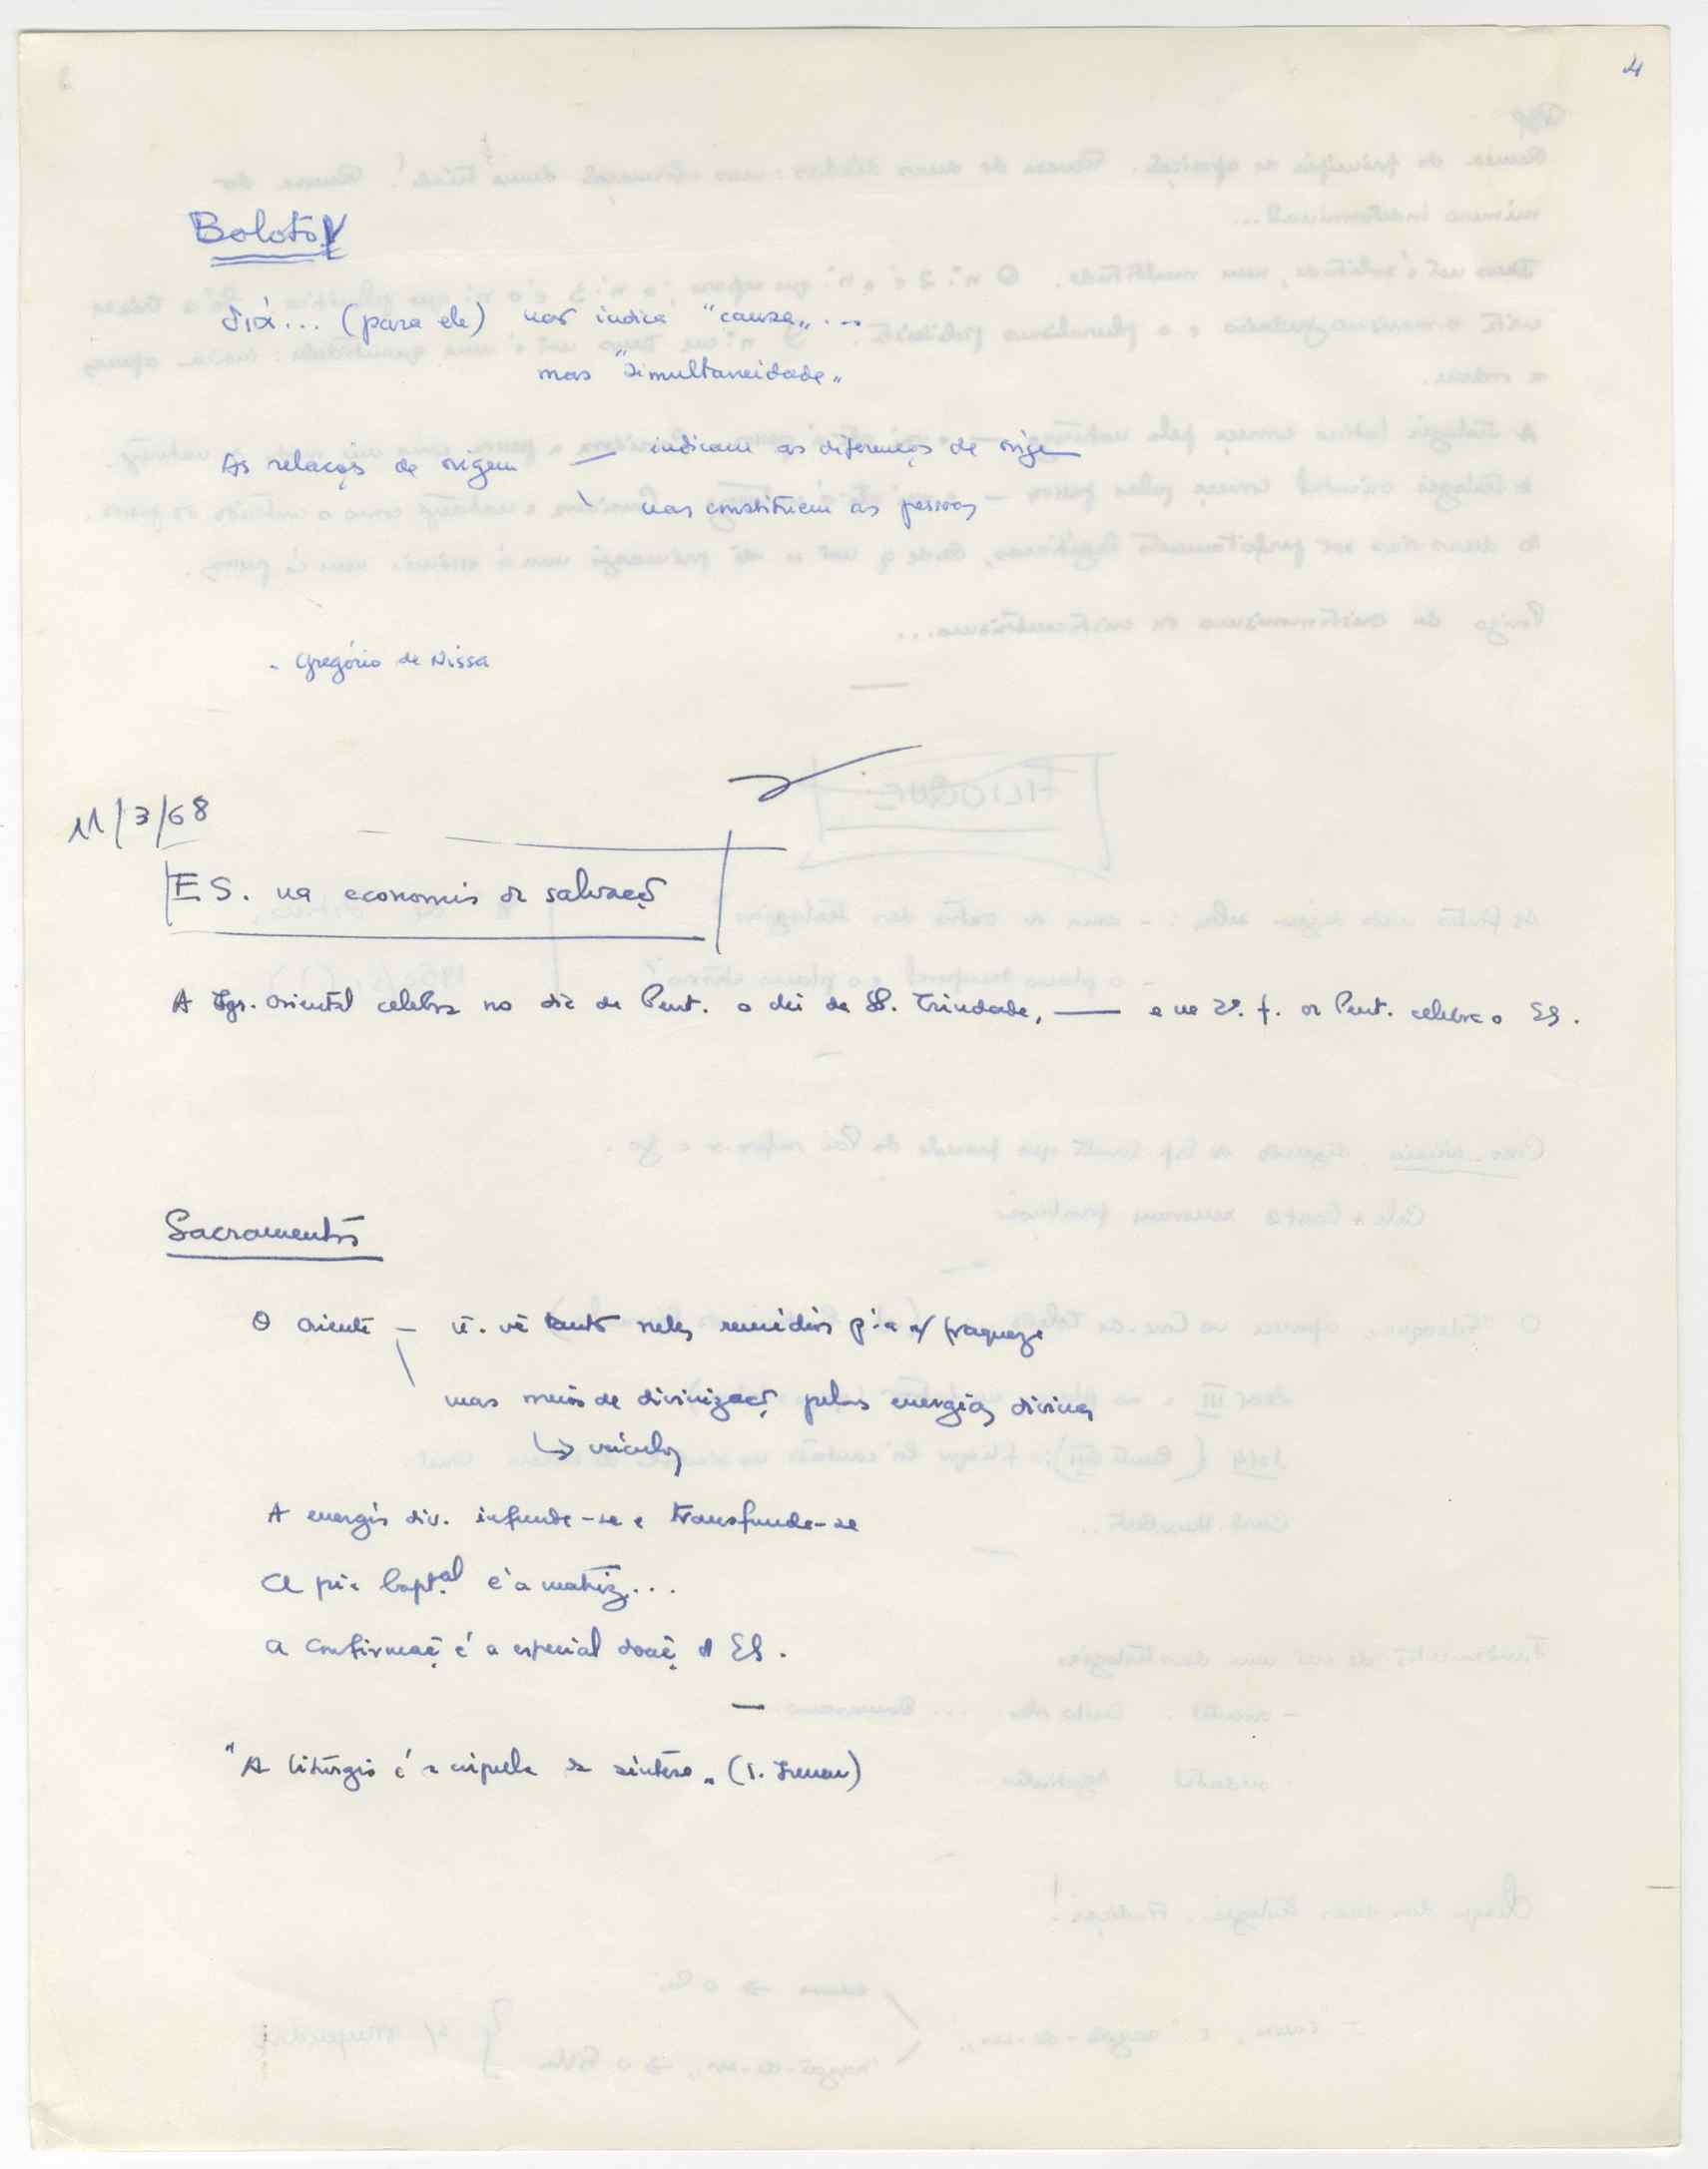 4
Bolotov
διά... (para ele) não indica "causa„...
mas "simultaneidade„
As relações de origem — indicam as diferenças de origem
não constituem as pessoas
- Gregório de Nissa
11/3/68
E S. na economia da salvação
A Igr. oriental celebra no dia de Pent. o dia da SS. Trindade, — e na 2ª. f. de Pent. celebra o ES.
Sacramentos
O oriente — ñ. vê tanto neles remédios p.ª a/ fraqueza
mas meios de divinização pelas energias divinas
↳ veículos
A energia div. infunde-se e transfunde-se
A pia bapt.al é a matriz...
a confirmação é a especial doação do ES.
—
"A liturgia é a cúpula da síntese„ (S. Irineu)